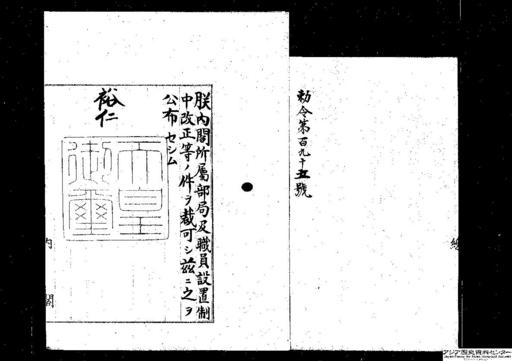 勅令第百九十五號
朕內閣所屬部局及職員設置制
中改正等ノ件ヲ裁可シ玆ニ之ヲ
公布セシム
裕仁
天皇
御璽
內閣
アジア歴史資料センター